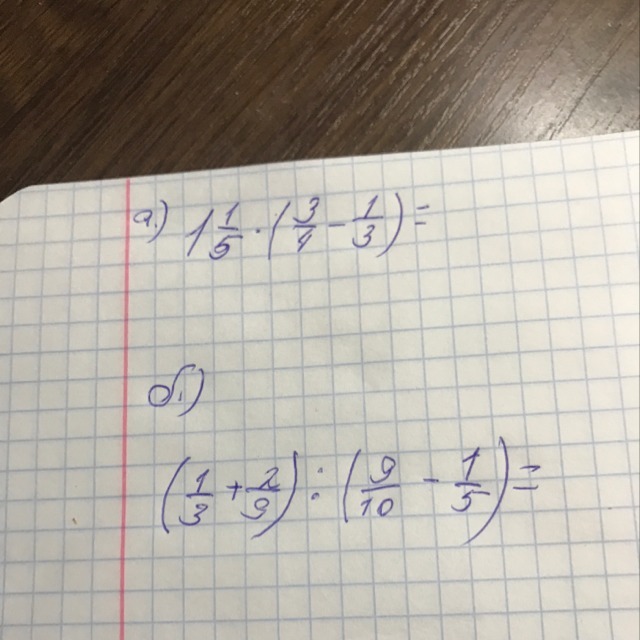 а) 1 1/5 · (3/4 − 1/3) =
б)
(1/3 + 2/9) : (9/10 − 1/5) =